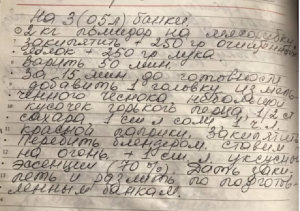 На 3 (0,5 л) банки.
2 кг помидор на мясорубку
закипятить + 250 гр очищенн.
яблок + 250 гр лука.
Варить 50 мин.
За 15 мин до готовности
добавить 1 головку измель-
ченного чеснока небольшой
кусочек горького перца, 1/2 ст
сахара, 1 ст л соли, 1 ч л
красной паприки. Закипятить
Перебить блендером. Ставим
на огонь + ст л уксусной
эссенции (70%). Дать заки-
петь и разлить по подготов-
ленным банкам.